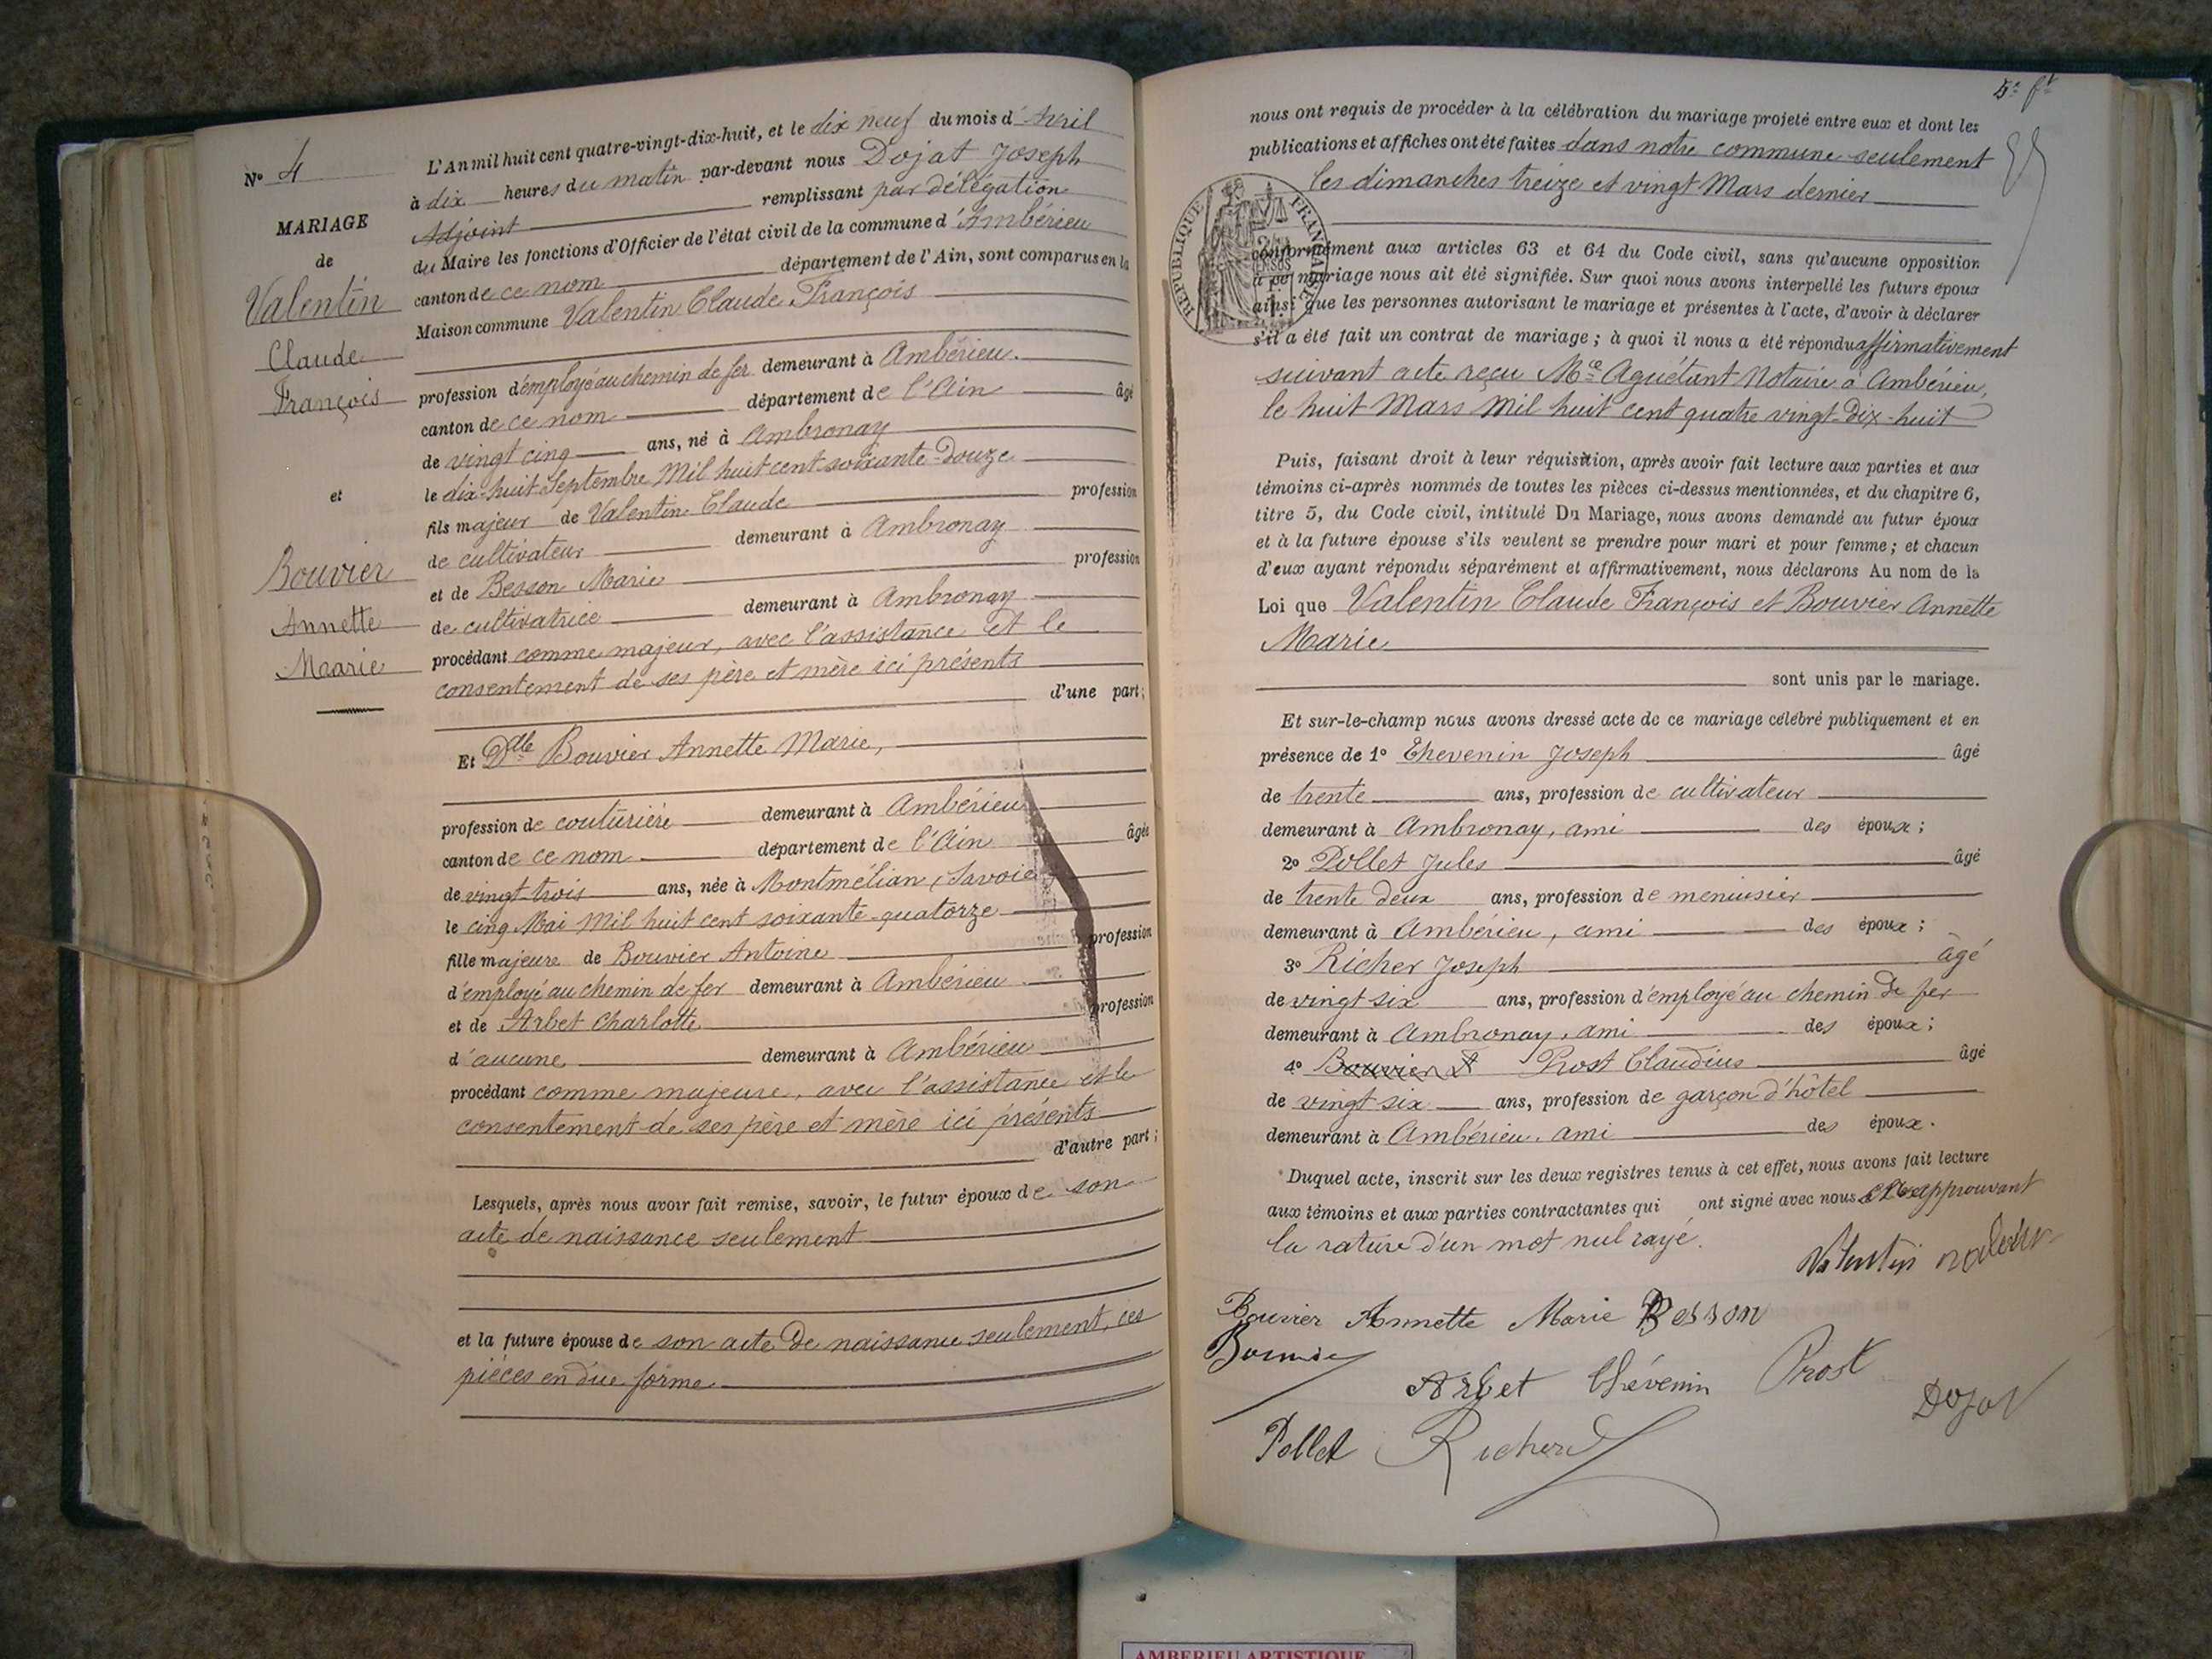 N° 4
MARIAGE
de
Valentin
Claude
François
et
Bouvier
Annette
Marie
L'An mil huit cent quatre-vingt-dix-huit, et le dix neuf du mois d'Avril
à dix heures du matin par-devant nous Dojat Joseph
Adjoint remplissant par délégation
du Maire les fonctions d'Officier de l'état civil de la commune d'Ambérieu
canton de ce nom département de l'Ain, sont comparus en la
Maison commune Valentin Claude François
profession d'employé au chemin de fer demeurant à Ambérieu.
canton de ce nom département de l'Ain âgé
de vingt cinq ans, né à Ambronay
le dix-huit Septembre Mil huit cent soixante-Douze
fils majeur de Valentin Claude profession
de cultivateur demeurant à Ambronay
et de Besson Marie profession
de cultivatrice demeurant à Ambronay
procédant comme majeur, avec l'assistance et le
consentement de ses père et mère ici présents
d'une part;
Et Dlle Bouvier Annette Marie,
profession de couturière demeurant à Ambérieu
canton de ce nom département de l'Ain âgée
de vingt-trois ans, née à Montmélian, Savoie
le cinq Mai Mil huit cent soixante-quatorze
fille majeure de Bouvier Antoine profession
d'employé au chemin de fer demeurant à Ambérieu
et de Arbet Charlotte profession
d'aucune demeurant à Ambérieu
procédant comme majeure, avec l'assistance et le
consentement de ses père et mère ici présents
d'autre part;
Lesquels, après nous avoir fait remise, savoir, le futur époux de son
acte de naissance seulement
et la future épouse de son acte de naissance seulement, ces
pièces en due forme
nous ont requis de procéder à la célébration du mariage projeté entre eux et dont les
publications et affiches ont été faites dans notre commune seulement
les dimanches treize et vingt Mars dernier
RÉPUBLIQUE FRANÇAISE
conformément aux articles 63 et 64 du Code civil, sans qu'aucune opposition
à ce mariage nous ait été signifiée. Sur quoi nous avons interpellé les futurs époux
ainsi que les personnes autorisant le mariage et présentes à l'acte, d'avoir à déclarer
s'il a été fait un contrat de mariage; à quoi il nous a été répondu affirmativement
suivant acte reçu Me Aguétant Notaire à Ambérieu,
le huit Mars Mil huit cent quatre vingt-Dix-huit
Puis, faisant droit à leur réquisition, après avoir fait lecture aux parties et aux
témoins ci-après nommés de toutes les pièces ci-dessus mentionnées, et du chapitre 6,
titre 5, du Code civil, intitulé Du Mariage, nous avons demandé au futur époux
et à la future épouse s'ils veulent se prendre pour mari et pour femme; et chacun
d'eux ayant répondu séparément et affirmativement, nous déclarons Au nom de la
Loi que Valentin Claude François et Bouvier Annette
Marie
sont unis par le mariage.
Et sur-le-champ nous avons dressé acte de ce mariage célébré publiquement et en
présence de 1° Thevenin Joseph âgé
de trente ans, profession de cultivateur
demeurant à Ambronay, ami des époux;
2° Pollet Jules âgé
de trente deux ans, profession de menuisier
demeurant à Ambérieu, ami des époux;
3° Richer Joseph âgé
de vingt six ans, profession d'employé au chemin de fer
demeurant à Ambronay, ami des époux;
4° Bouvier Prost Claudius âgé
de vingt six ans, profession de garçon d'hôtel
demeurant à Ambérieu, ami des époux.
Duquel acte, inscrit sur les deux registres tenus à cet effet, nous avons fait lecture
aux témoins et aux parties contractantes qui ont signé avec nous approuvant
la rature d'un mot nul rayé.
Valentin
Bouvier Annette Marie Besson
Bouvier
Arbet Thévenin Prost
Dojat
Pollet Richer
AMBERIEU ARTISTIQUE